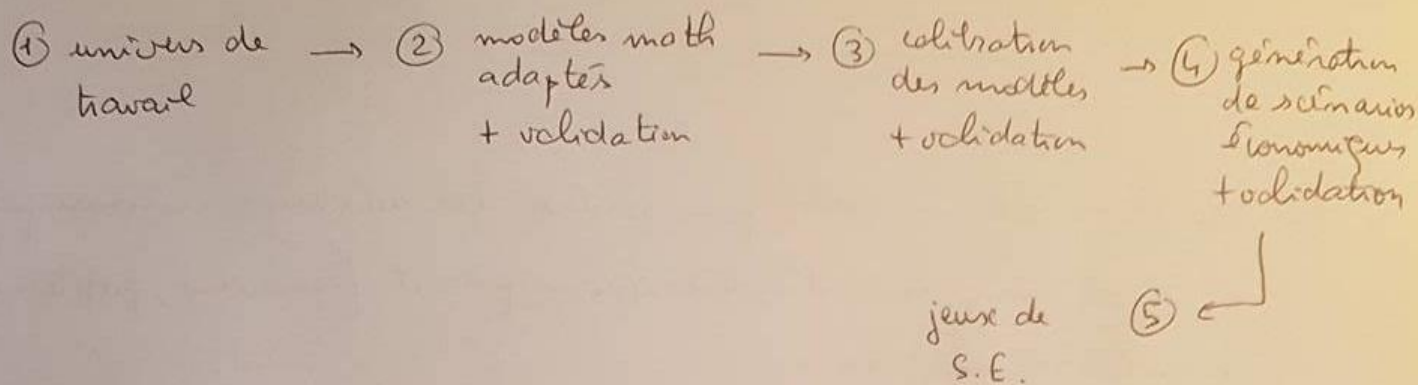 ① univers de
travail
→ ② modèles math
adaptés
+ validation
→ ③ calibration
des modèles
+ validation
→ ④ génération
de scénarios
économiques
+ validation
jeux de ⑤ ←
S.E.